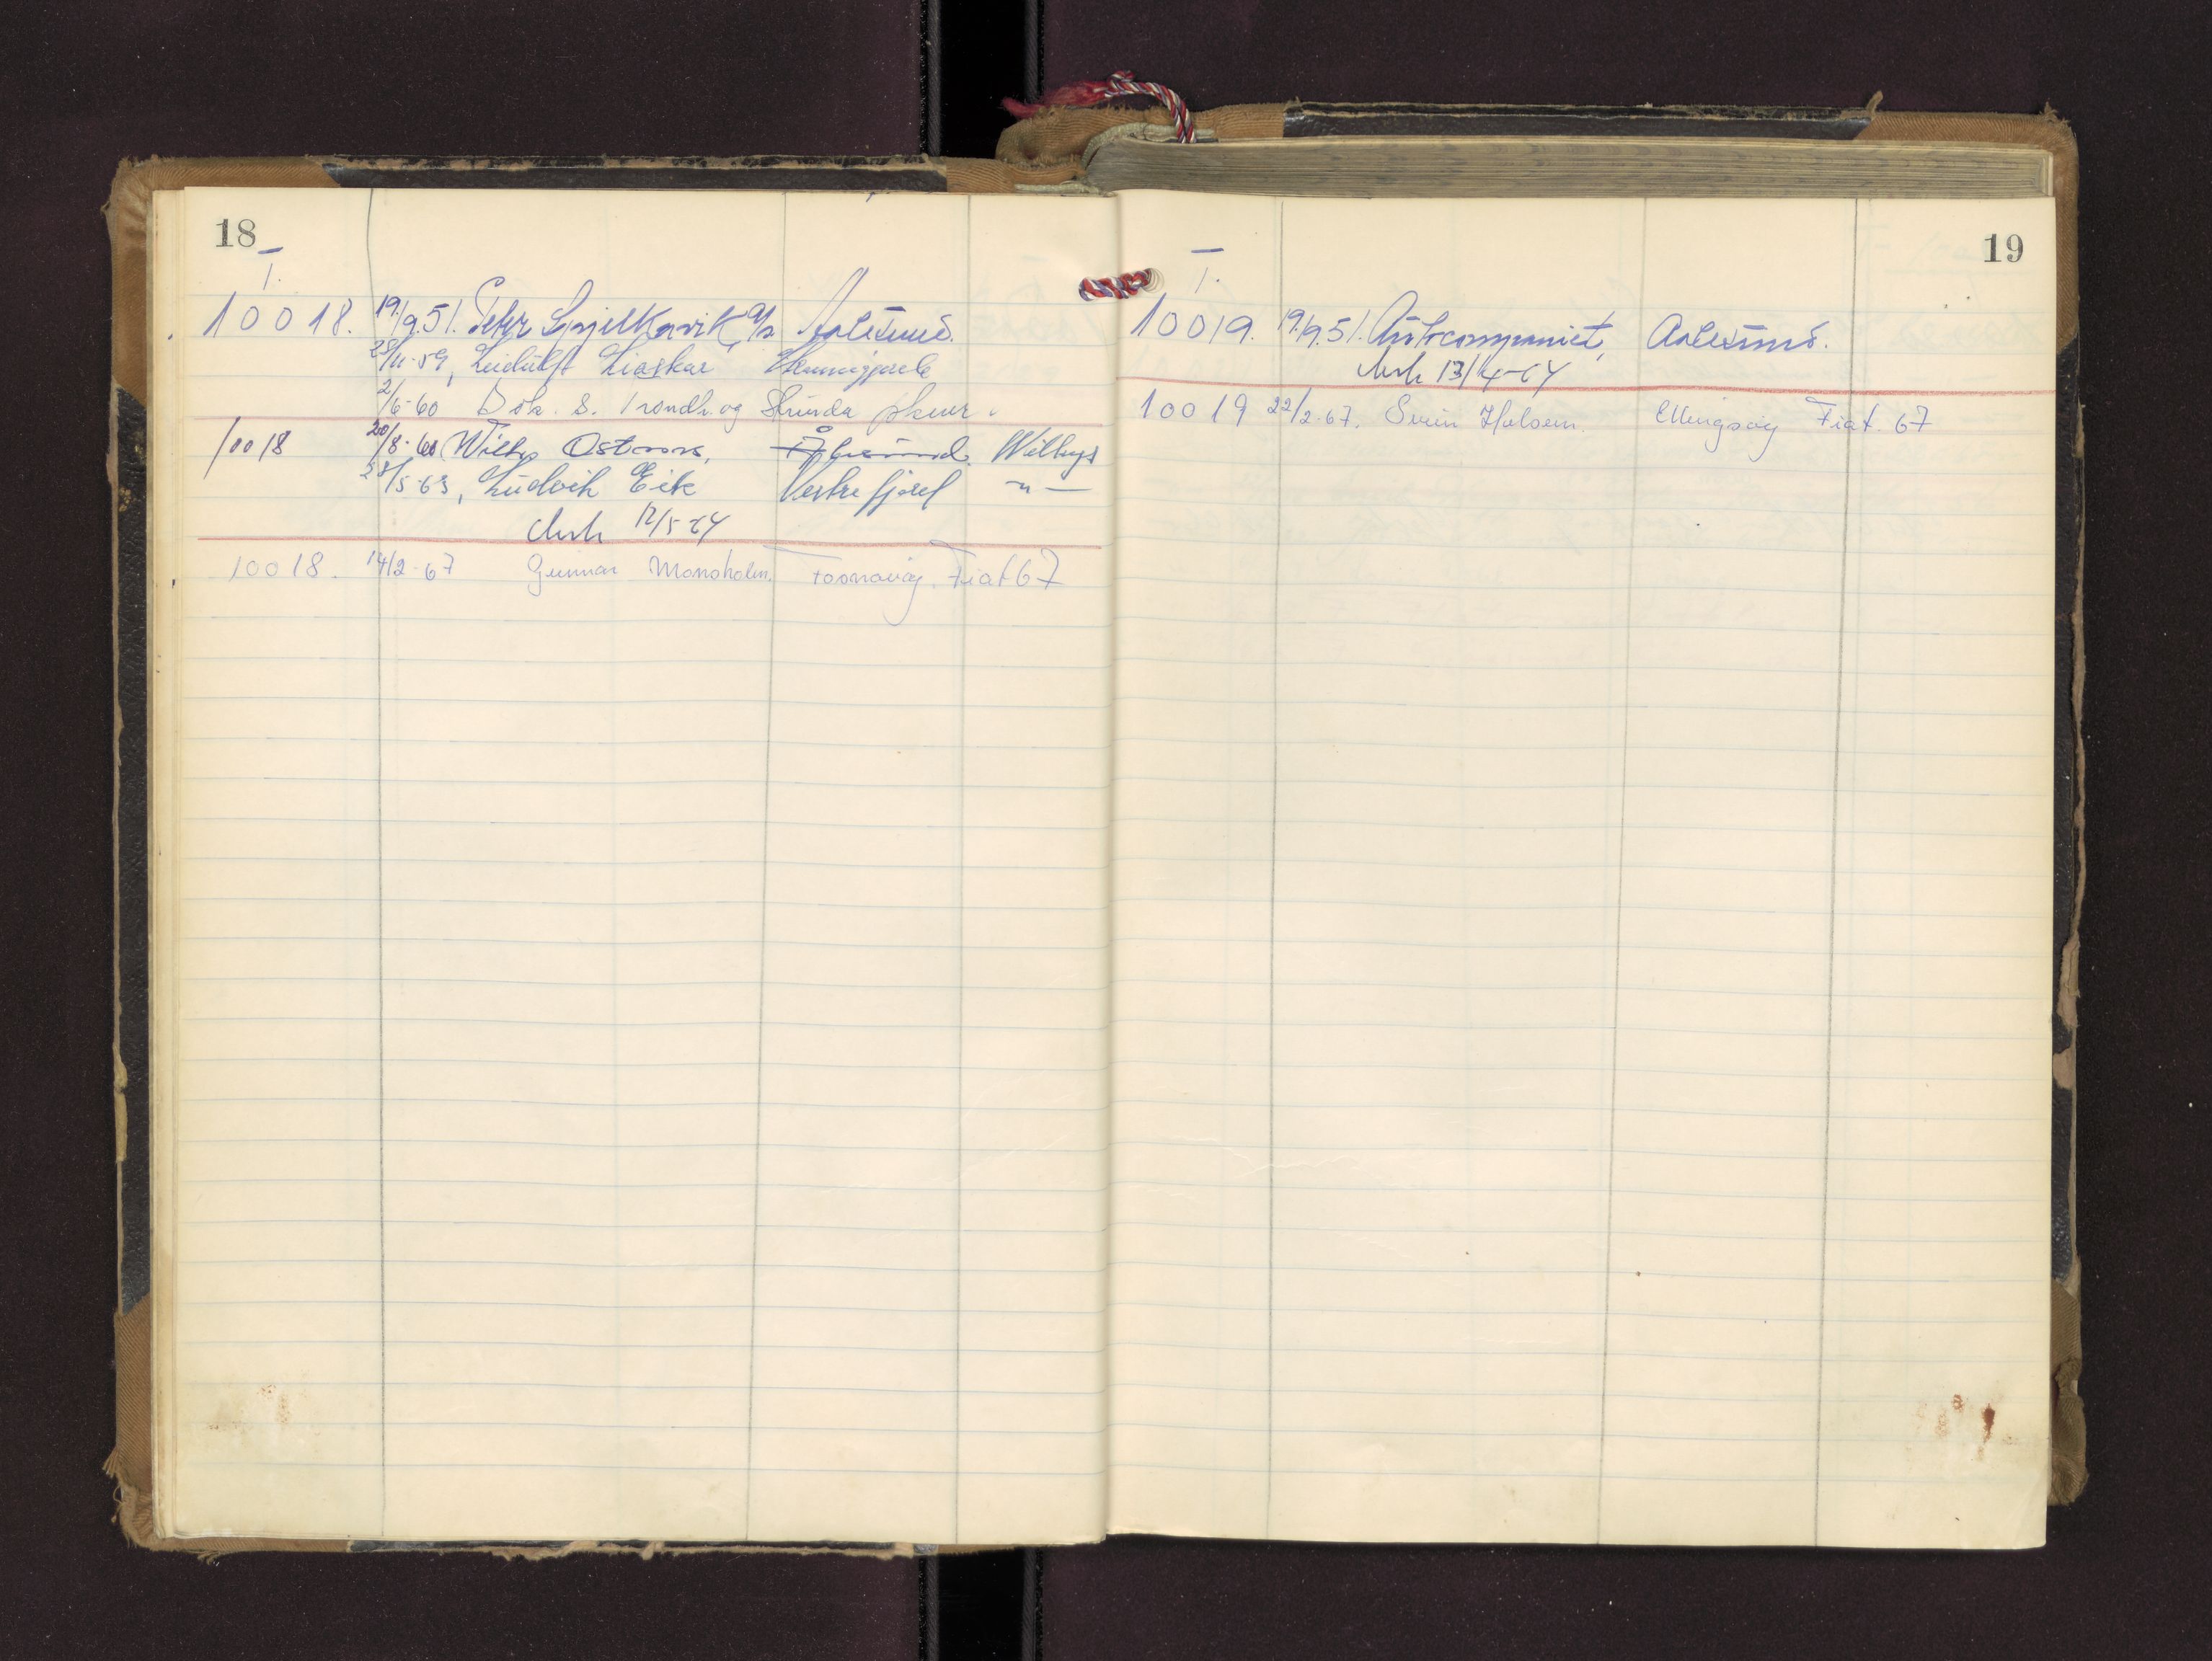 18
T.
10018. 19/9.51. Peter Spjelkavik, A/S Aalesund.
28/11-59, Ludulft Liaskar
2/6-60 Dok. s. Trondh. og Strinda pkmr.
10018 20/8-60 Østmoe, Ålesund. Willys
28/5-63, Ludvik Eik Vestrefjord -"-
Avsk 12/5-64
10018. 14/2-67 Gunnar Monsholm. Fosnavåg. Fiat 67
19
T.
10019. 19/9.51. Autocompaniet, Aalesund.
Avsk 13/4-64
10019 22/2-67. Svein Holsen. Ellingsøy Fiat. 67